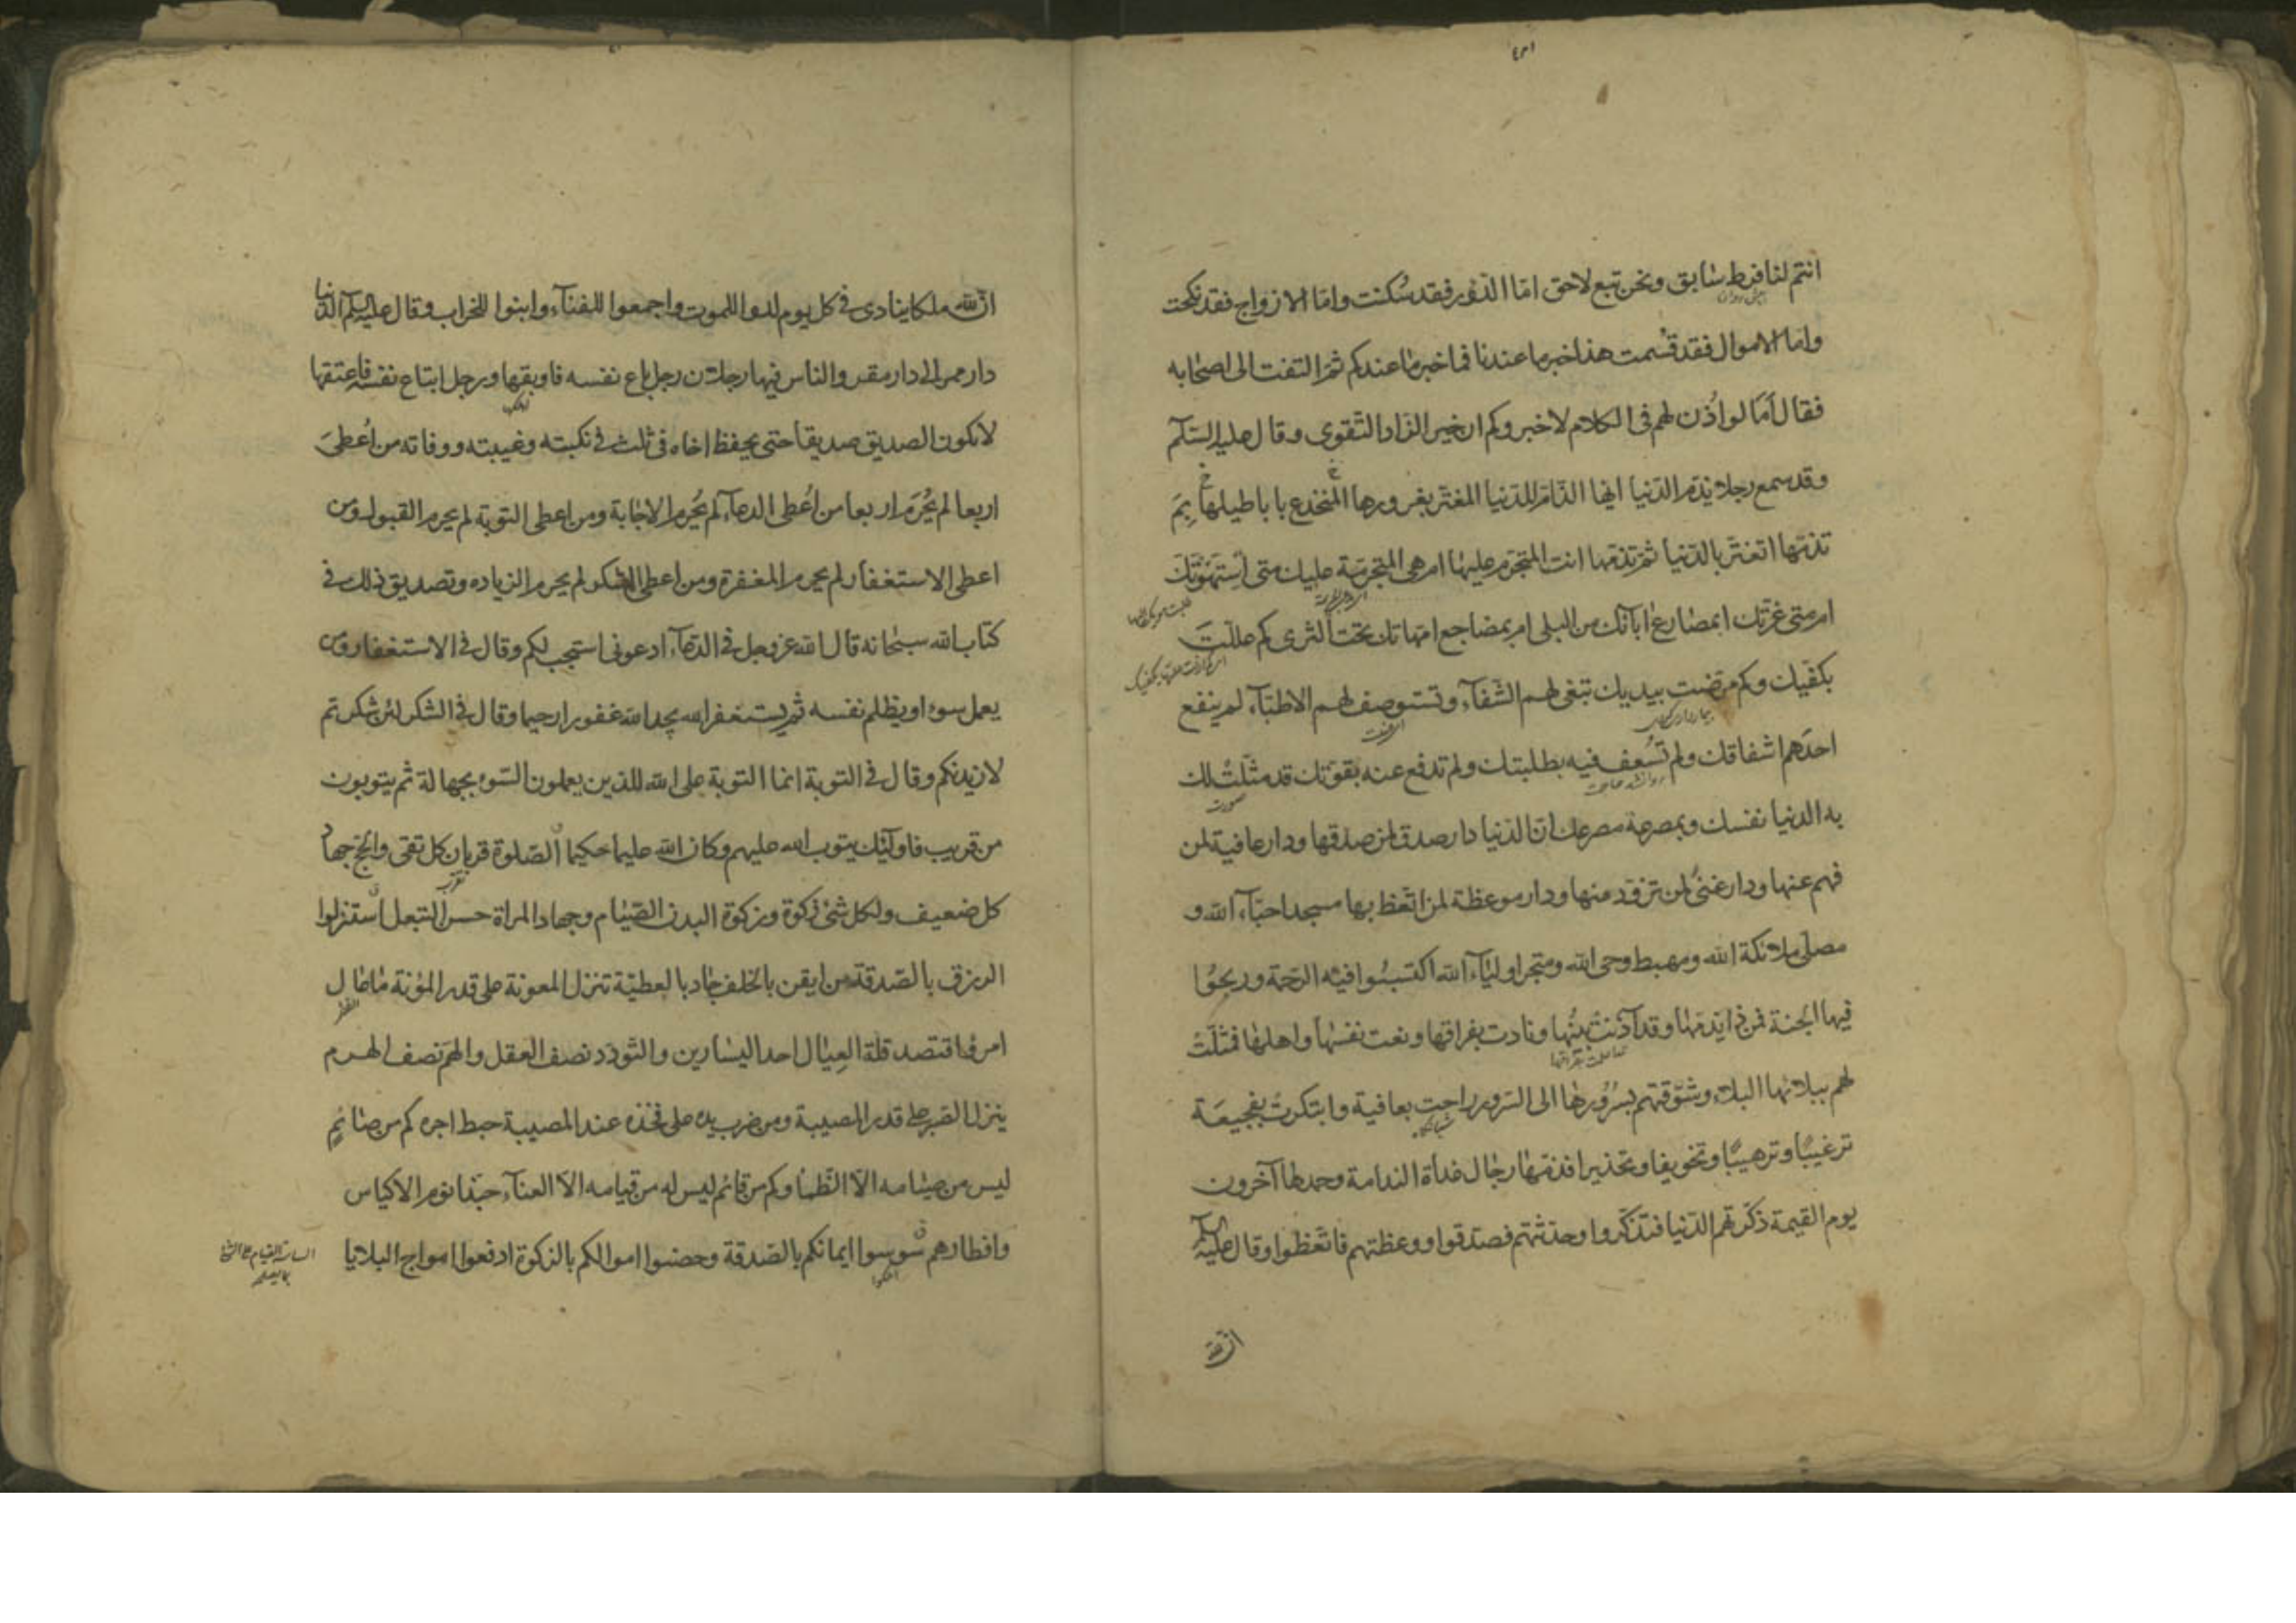 انتم لنا فرط سابق ونحن تبع لاحق امّا الدّور فقد سُكنت وامّا الازواج فقد نكحت
وامّا الاموال فقد قُسمت هذا خبر ما عندنا فما خبر ما عندكم ثمّ التفت الى اصحابه
فقال اَمَا لو اُذن لهم فى الكلام لاخبروكم ان خير الزّاد التّقوى وقال عليه السّلام
وقد سمع رجلا يذمّ الدّنيا ايها الذّامّ للدّنيا المغترّ بغرورها المنخدع باباطيلها بِمَ
تذمّها اتغترّ بالدّنيا ثمّ تذمّها انت المتجرّم عليها ام هى المتجرّمة عليك متى استهوَتكَ
ام متى غرّتك ابمصارع اٰبآئك من البلى ام بمضاجع امّهاتك تحت الثرى كم علّلتَ
بكفّيك وكم مرّضت بيديك تبغى لهم الشّفآء وتستوصف لهم الاطبّآء لم ينفع
احدهم اشفاقك ولم تُسعف فيه بطلبتك ولم تدفع عنه بقوّتك قد مثّلتْ لك
به الدنيا نفسك وبمصرعه مصرعك انّ الدّنيا دار صدق لمن صدقها ودار عافية لمن
فهم عنها ودار غنىً لمن تزوّد منها ودار موعظة لمن اتّعظ بها مسجد احبّآء الله و
مصلّى ملائكة الله ومهبط وحى الله ومتجر اوليآء الله اكتسبُوا فيه الرّحمة وربحُوا
فيها الجنة فمن ذا يذمّها وقد آذنتْ ببَينها ونادت بفراقها ونعت نفسَها واهلها فمثّلَتْ
لهم ببلائها البلاء وشوّقتهم بسُرُورها الى السّرور راحت بعافية وابتكرتْ بفجيعَة
ترغيبًا وترهيبًا وتخويفا وتحذيرا فذمّها رجال غداة الندامة وحمدها آخرون
يوم القيمة ذكّرتهم الدّنيا فتذكّروا وحدّثتهم فصدّقوا ووعظتهم فاتّعظوا وقال عليه السلام
ان لله
ان لله ملكا ينادى فى كل يوم لدوا للموت واجمعوا للفنآء وابنوا للخراب وقال عليه السلام الدّنيا
دار ممر الى دار مقر والناس فيها رجلان رجل باع نفسه فاوبقها ورجل ابتاع نفسه فاعتقها
لا يكون الصديق صديقا حتى يحفظ اخاه فى ثلث فى نكبته وغيبته ووفاته من اُعطىَ
اربعا لم يُحرَم اربعا من اُعطى الدعآء لم يُحرم الاجابة ومن اعطى التوبة لم يحرم القبول ومن
اعطى الاستغفار لم يحرم المغفرة ومن اعطى الشكر لم يحرم الزياده وتصديق ذلك فى
كتاب الله سبحانه قال الله عز وجل فى الدّعآء ادعونى استجب لكم وقال فى الاستغفار ومن
يعمل سوءا او يظلم نفسه ثم يستغفر الله يجد الله غفورا رحيما وقال فى الشكر لئن شكرتم
لازيدنكم وقال فى التوبة انما التوبة على الله للذين يعملون السّوء بجهالة ثم يتوبون
من قريب فاولئك يتوب الله عليهم وكان الله عليما حكيما الصّلوة قربان كل تقى والحج جهاد
كل ضعيف ولكل شئ زكوة وزكوة البدن الصّيام وجهاد المراة حسن التبعل استنزلوا
الرزق بالصّدقة من ايقن بالخلف جاد بالعطيّة تنزل المعونة على قدر المؤنة ما عال
امرؤ اقتصد قلة العِيال احد اليسارين والتودّد نصف العقل والهمّ نصف الهرم
ينزل الصّبر على قدر المصيبة ومن ضرب يده على فخذه عند المصيبة حبط اجره كم من صائمٍ
ليس من صيامه الّا الظّمأ وكم من قائم ليس له من قيامه الّا العنآء حبّذا نوم الاكياس
وافطارهم سُوسوا ايمانكم بالصّدقة وحصّنوا اموالكم بالزكوة ادفعوا امواج البلايا
السياسة القيام على الشئ
بما يصلحه